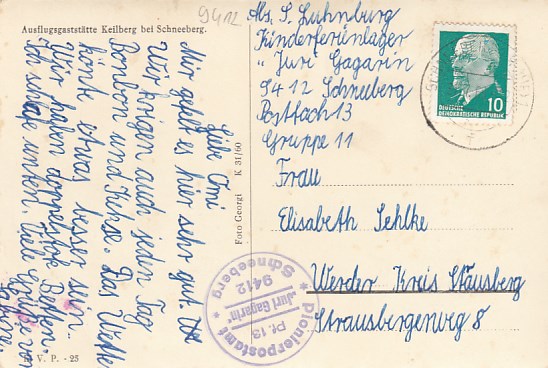 Ausflugsgaststätte Keilberg bei Schneeberg.
9412
Liebe Omi
Mir gefelt es hier sehr gut.
Wir krigen auch jeden Tag
Bonbon und Kekse. Das Wetter
könte etwas besser sein.
Wir habn doppelstok Betten.
Ich schlafe unten. Viele Grüße von
Sabine.
K. V. P. - 25
Foto Georgi K 31/60
Abs. S. Luhnburg
Kinderferienlager
„Juri Gagarin
9412 Schneeberg
Postfach 13
Gruppe 11
Frau
Elisabeth Sehlke
Werder Kreis Stausberg
Strausbergerweg 8
10
DEUTSCHE
DEMOKRATISCHE REPUBLIK
Pionierpostamt
Pf. 13
"Juri Gagarin"
9412
Schneeberg